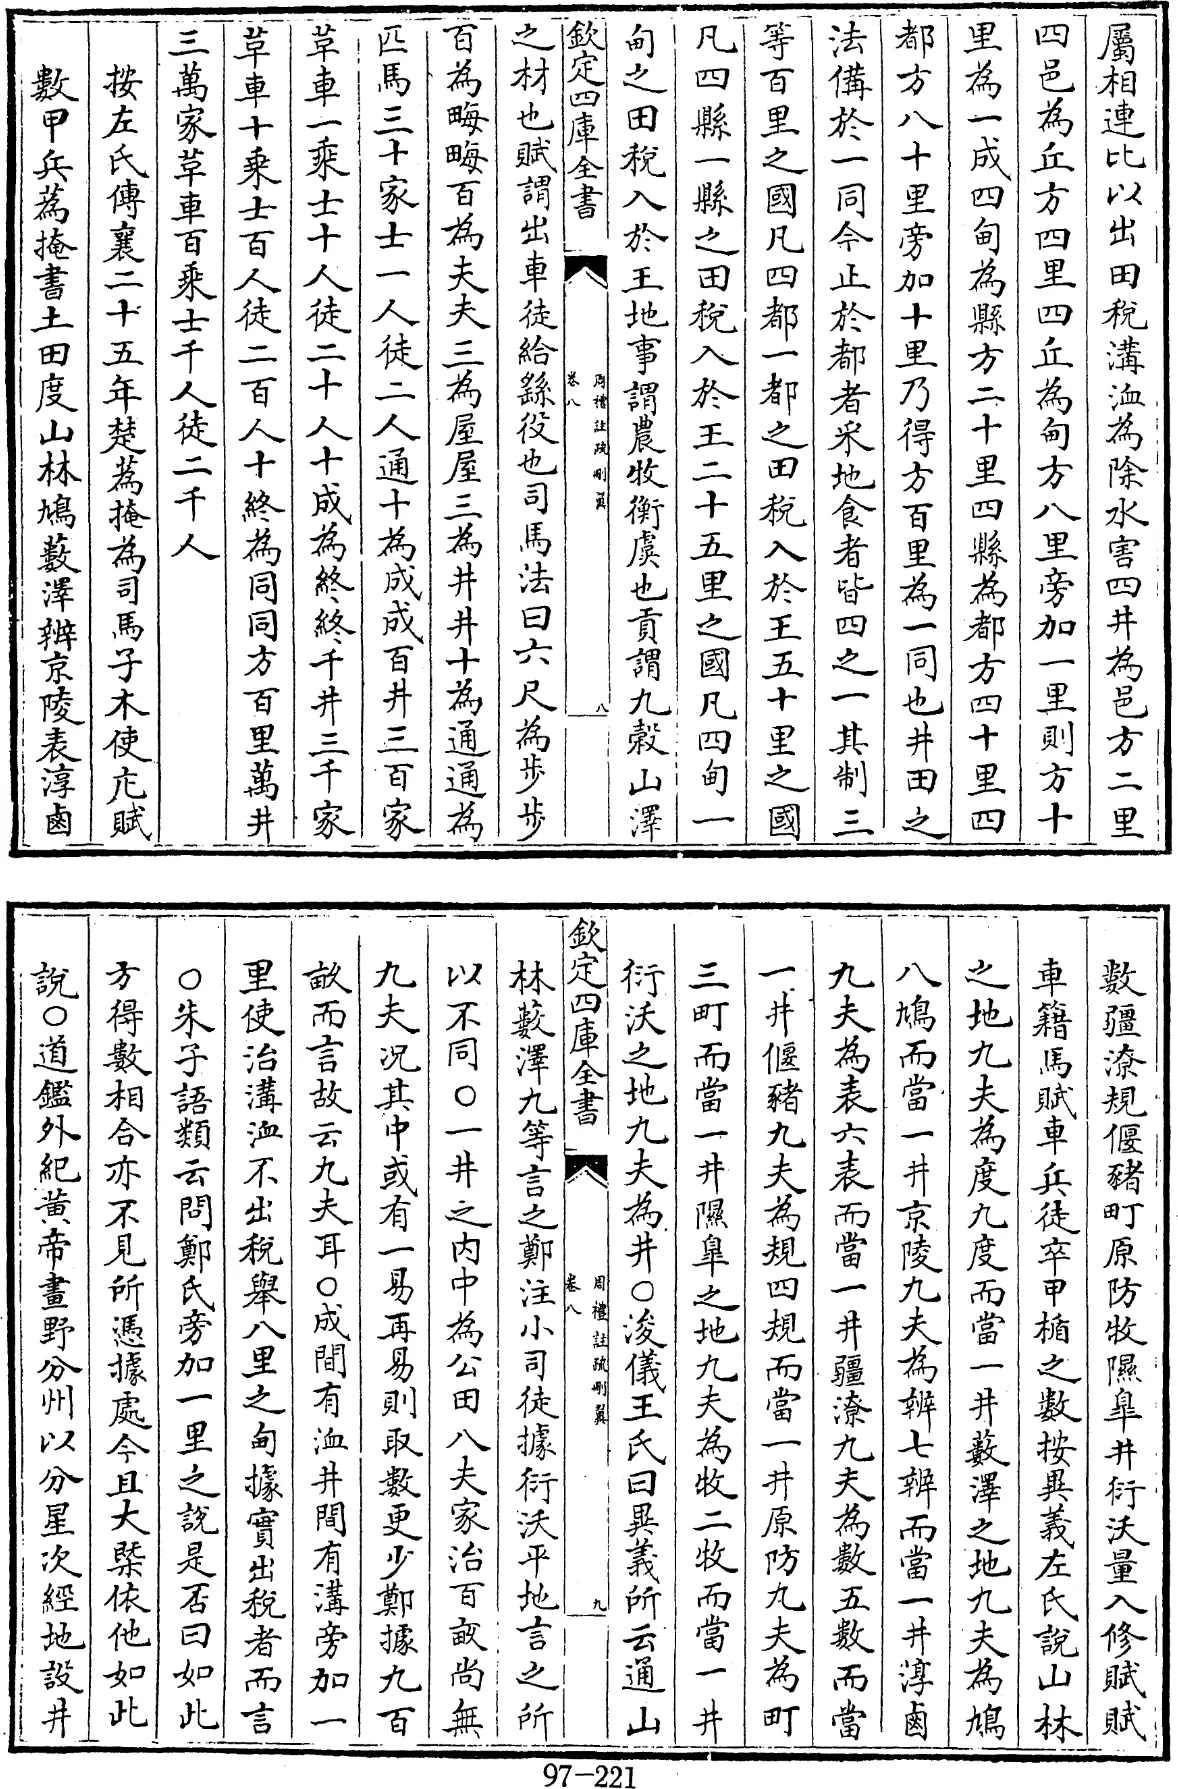 屬相連比以出田稅溝洫為除水害四井為邑方二里
四邑為丘方四里四丘為甸方八里旁加一里則方十
里為一成四甸為縣方二十里四縣為都方四十里四
都方八十里旁加十里乃得方百里為一同也井田之
法備於一同今止於都者采地食者皆四之一其制三
等百里之國凡四都一都之田稅入於王五十里之國
凡四縣一縣之田稅入於王二十五里之國凡四甸一
甸之田稅入於王地事謂農牧衡虞也貢謂九穀山澤
欽定四庫全書
周禮註疏刪翼
卷八
八
之材也賦謂出車徒給繇役也司馬法曰六尺為步步
百為晦晦百為夫夫三為屋屋三為井井十為通通為
匹馬三十家士一人徒二人通十為成成百井三百家
革車一乘士十人徒二十人十成為終終千井三千家
革車十乘士百人徒二百人十終為同同方百里萬井
三萬家革車百乘士千人徒二千人
按左氏傳襄二十五年楚蒍掩為司馬子木使庀賦
數甲兵蒍掩書土田度山林鳩藪澤辨京陵表淳鹵
數疆潦規偃豬町原防牧隰臯井衍沃量入修賦賦
車籍馬賦車兵徒卒甲楯之數按異義左氏說山林
之地九夫為度九度而當一井藪澤之地九夫為鳩
八鳩而當一井京陵九夫為辨七辨而當一井淳鹵
九夫為表六表而當一井疆潦九夫為數五數而當
一井偃豬九夫為規四規而當一井原防九夫為町
三町而當一井隰臯之地九夫為牧二牧而當一井
衍沃之地九夫為井○浚儀王氏曰異義所云通山
欽定四庫全書
周禮註疏刪翼
卷八
九
林藪澤九等言之鄭注小司徒據衍沃平地言之所
以不同○一井之內中為公田八夫家治百畝尚無
九夫況其中或有一易再易則取數更少鄭據九百
畝而言故云九夫耳○成間有洫井間有溝旁加一
里使治溝洫不出稅舉八里之甸據實出稅者而言
○朱子語類云問鄭氏旁加一里之說是否曰如此
方得數相合亦不見所憑據處今且大槩依他如此
說○道鑑外紀黃帝畫野分州以分星次經地設井
97-221